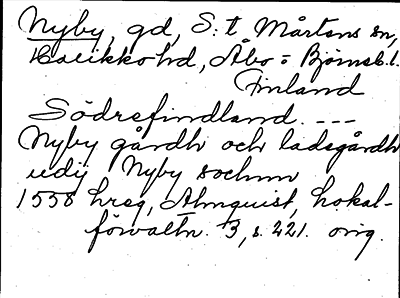 Nyby, gd, S:t Mårtens sn,
Halikko hd, Åbo - Björneb. l.
Finland
Södrefindland. ---
Nyby gårdh och ladegårdh
udij Nyby sochnn
1558 hreg, Almquist, Lokal-
förvaltn. 3, s. 221. orig.